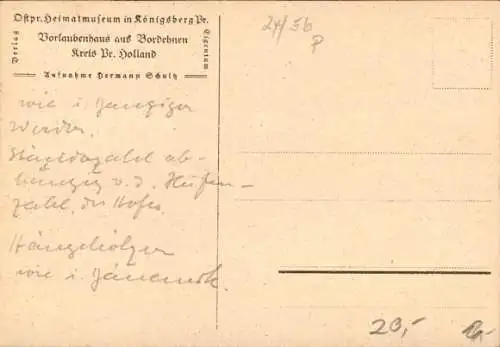 Ostpr. Heimatmuseum in Königsberg Pr.
Vorlaubenhaus aus Bordehnen
Kreis Pr. Holland
Verlag
Eigentum
Aufnahme Hermann Schultz
24/56
P
wie i. Danziger
Werder.
ab-
hängig v. d. Hufen-
zahl des Hofes.
Hängehölzer
wie i. Dänemark.
20,-